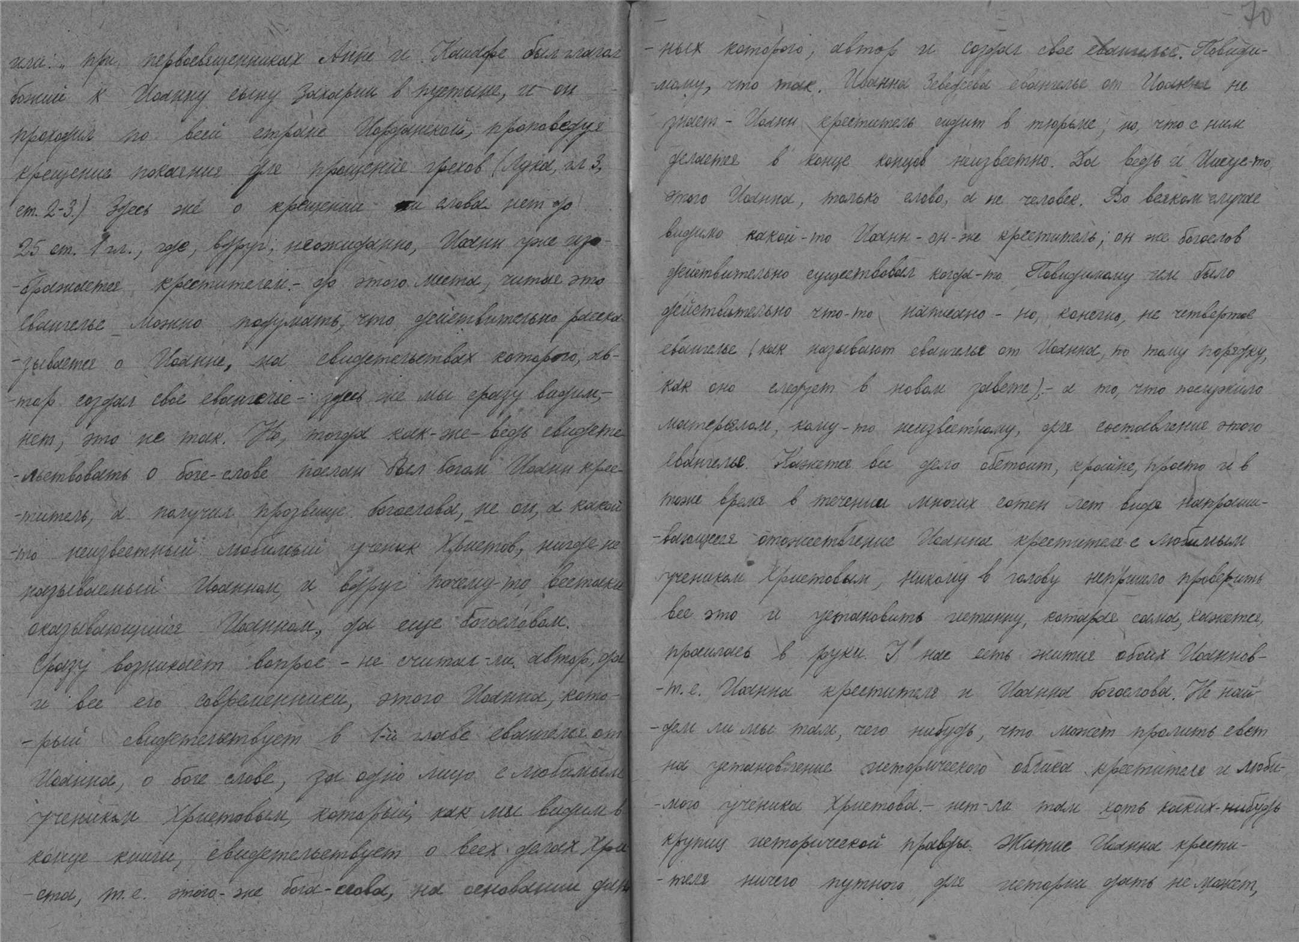 при первосвященниках Анне и Каиафе был глагол
божий к Иоанну сыну Захарии в пустыне, и он
проходил по всей стране Иорданской, проповедуя
крещения покаяния для прощение грехов (Лука, гл 3,
ст. 2-3.) Здесь же о крещении и слова нет до
25 ст. 1 гл., где, вдруг, неожиданно, Иоанн уже изо-
-бражается крестителем - до этого места, читая это
Евангелье можно подумать, что действительно расска
-зывается о Иоанне, на свидетельствах которого, ав-
-тор создал свое евангелие - здесь же мы сразу видим,-
нет, это не так. Но, тогда как-же - ведь свидете
-льствовать о боге-слове послан был богом Иоанн крес-
-титель, а получил прозвище богослова, не он, а какой
-то неизвестный любимый ученик Христов, нигде не
называемый Иоанном, и вдруг почему-то всетаки
оказывающийся Иоанном, да еще богословом.
Сразу возникает вопрос - не считал-ли автор, да
и все его современники, этого Иоанна, кото-
-рый свидетельствует в 1-й главе евангелия от
Иоанна, о боге слове, за одно лицо с любимым
учеником Христовым, который, как мы видим в
конце книги, свидетельствует о всех делах Хри
-ста, т.е. этого-же бога-слова, на основании дан
70
-ных которого, автор и создал свое евангелье. Повиди-
-мому, что так. Иоанна Зеведеева евангелье от Иоанна не
знает - Иоанн креститель сидит в тюрьме, но, что с ним
делается в конце концов неизвестно. Да ведь и Иисус-то
этого Иоанна, только слово, а не человек. Во всяком случае
видимо какой-то Иоанн - он-же креститель; он же богослов
действительно существовал когда-то. Повидимому им было
действительно что-то написано - но, конечно, не четвертое
евангелье (как называют евангелье от Иоанна, по тому порядку,
как оно следует в новом завете) - а то, что послужило
материалом, кому-то неизвестному, для составление этого
евангелья. Кажется все дело обстоит, крайне, просто и в
тоже время в течении многих сотен лет видя напраши-
-вающееся отожествление Иоанна крестителя с любимым
учеником Христовым, никому в голову непришло проверить
все это и установить истину, которая сама, кажется,
просилась в руки. У нас есть жития обоих Иоаннов-
-т.е. Иоанна крестителя и Иоанна богослова. Не най-
-дем ли мы там, чего нибудь, что может пролить свет
на установление исторического облика крестителя и люби-
-мого ученика Христова - нет-ли там хоть каких-нибудь
крупиц исторической правды. Житие Иоанна крести-
-теля ничего путного для истории дать не может,